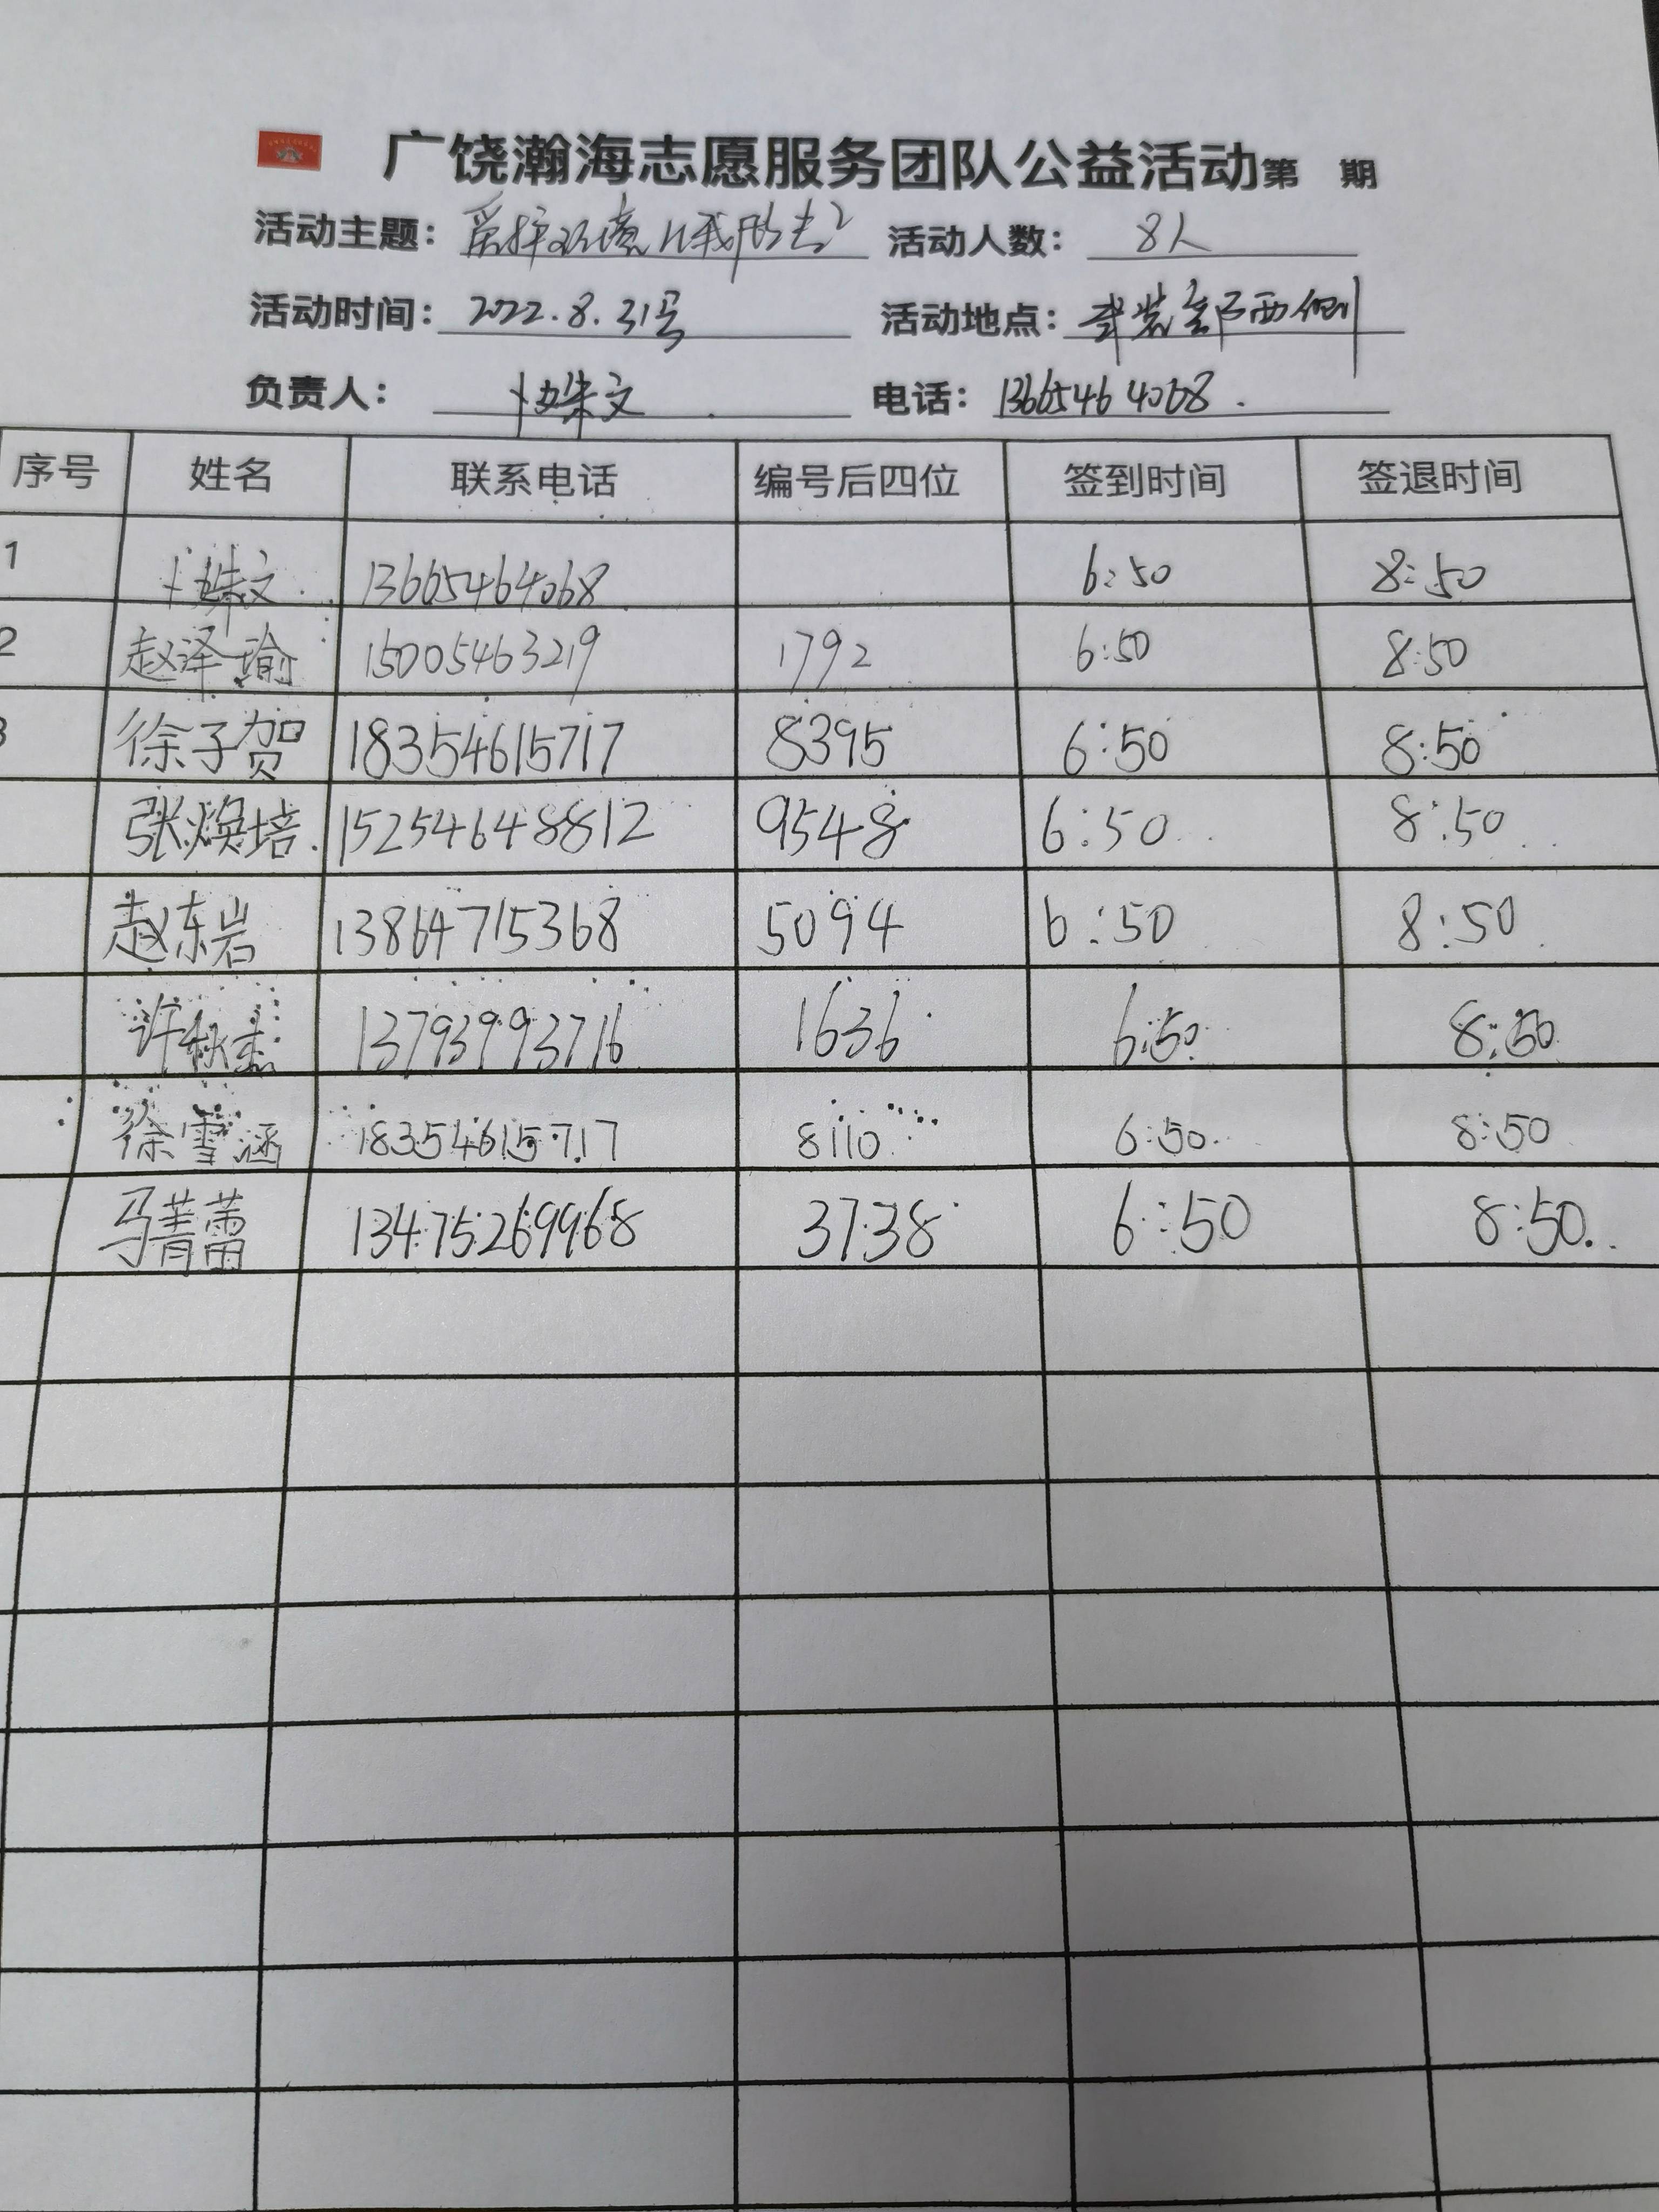 广饶瀚海志愿服务团队公益活动第 期
活动主题： 爱护环境从我做起 活动人数： 8人
活动时间： 2022.8.31号 活动地点： 武装部西侧
负责人： 卜姝文 电话： 13665464068.
序号 姓名 联系电话 编号后四位 签到时间 签退时间
1 卜姝文 13665464068 6:50 8:50
2 赵泽瑜 15005463219 1792 6:50 8:50
3 徐子贺 18354615717 8395 6:50 8:50
张焕培 15254648812 9548 6:50 8:50
赵东岩 13864715368 5094 6:50 8:50
许秋 13793993716 1636 6:50 8:50
徐雪涵 18354615717 8110 6:50 8:50
马菁蕾 13475269968 3738 6:50 8:50